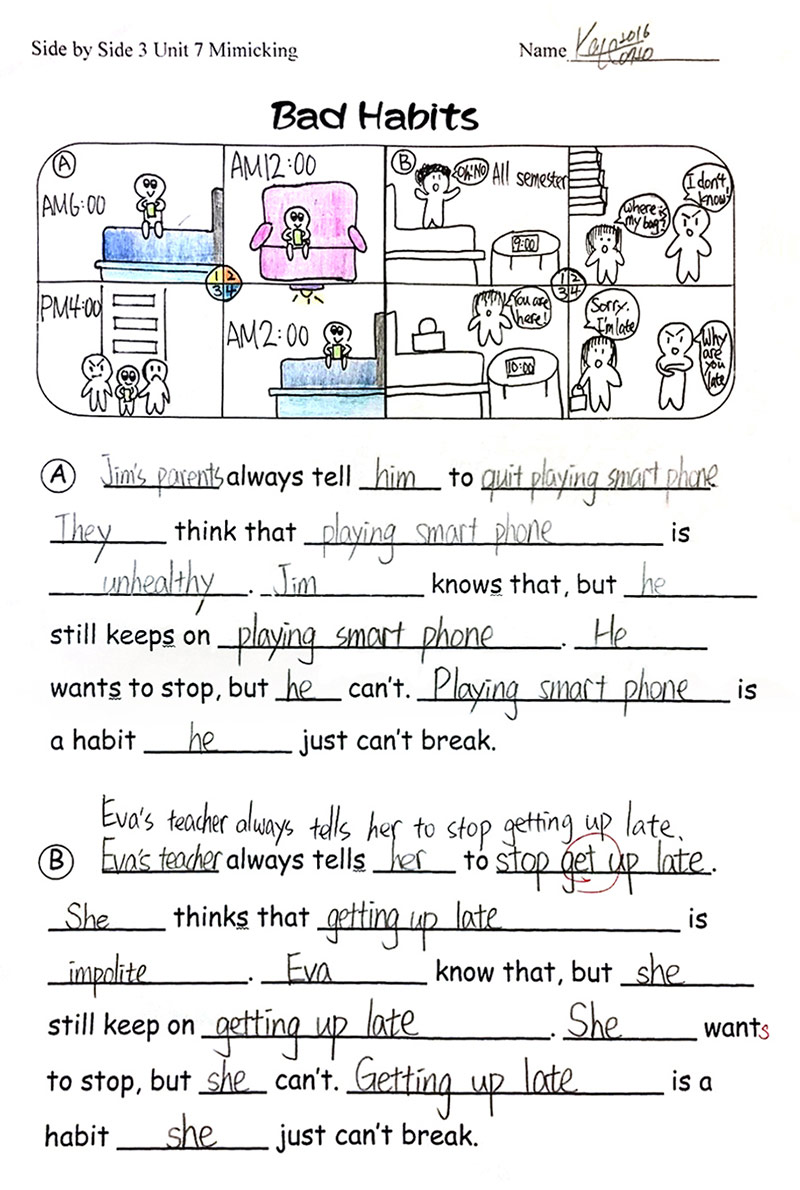 Side by Side 3 Unit 7 Mimicking
Name 2016
Bad Habits
A
AM6:00
AM12:00
PM4:00
AM2:00
1 2
3 4
B
Oh!No
All semester
9:00
Where is
my bag?
I don't
know!
You are
here!
10:00
Sorry.
I'm late
Why
are
you
late
1 2
3 4
A Jim's parents always tell him to quit playing smart phone
They think that playing smart phone is
unhealthy. Jim knows that, but he
still keeps on playing smart phone. He
wants to stop, but he can't. Playing smart phone is
a habit he just can't break.
Eva's teacher always tells her to stop getting up late.
B Eva's teacher always tells her to stop get up late.
She thinks that getting up late is
impolite. Eva know that, but she
still keep on getting up late. She wants
to stop, but she can't. Getting up late is a
habit she just can't break.